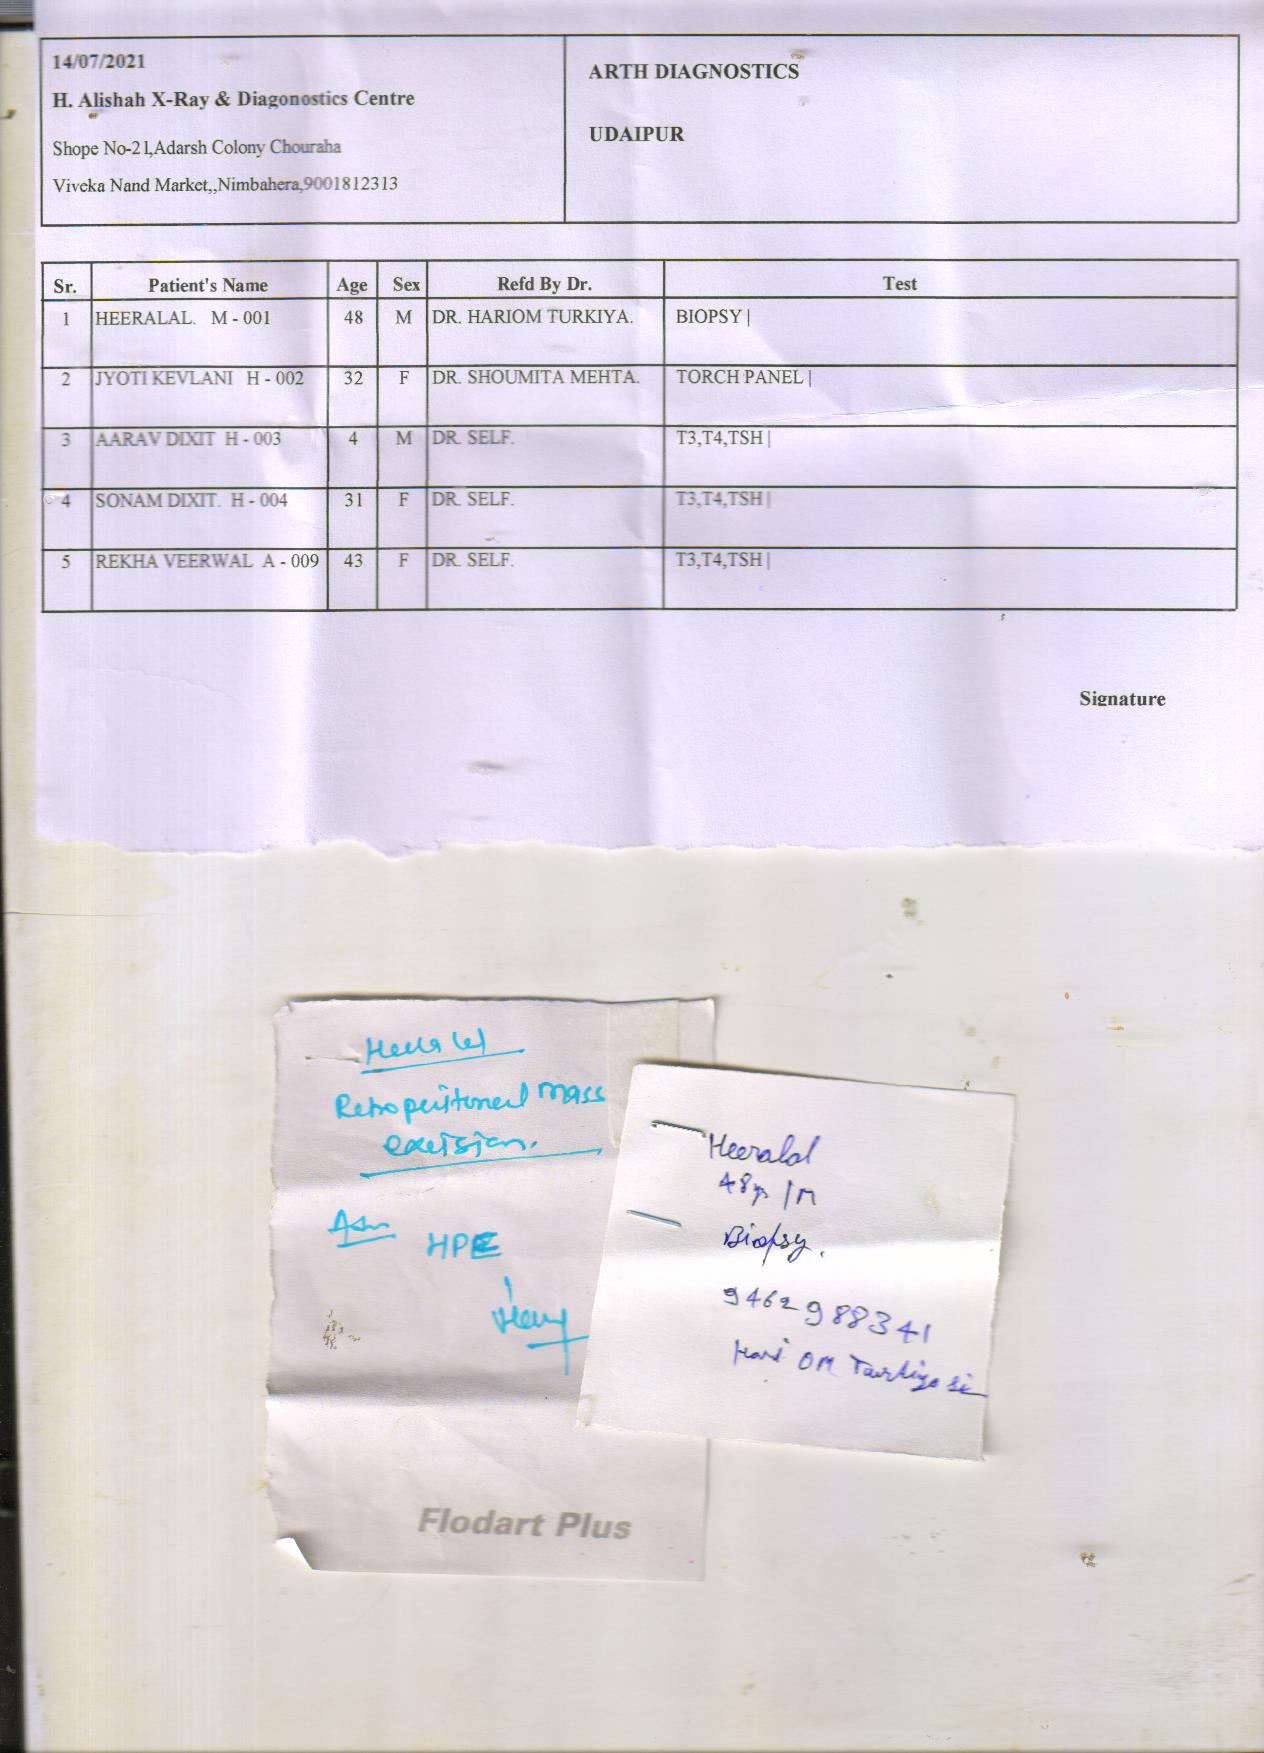 14/07/2021
H. Alishah X-Ray & Diagonostics Centre
Shope No-21,Adarsh Colony Chouraha
Viveka Nand Market,,Nimbahera,9001812313
ARTH DIAGNOSTICS
UDAIPUR
Sr. Patient's Name Age Sex Refd By Dr. Test
1 HEERALAL. M - 001 48 M DR. HARIOM TURKIYA. BIOPSY |
2 JYOTI KEVLANI H - 002 32 F DR. SHOUMITA MEHTA. TORCH PANEL |
3 AARAV DIXIT H - 003 4 M DR. SELF. T3,T4,TSH |
4 SONAM DIXIT. H - 004 31 F DR. SELF. T3,T4,TSH |
5 REKHA VEERWAL A - 009 43 F DR. SELF. T3,T4,TSH |
Signature
Heeralal
Retroperitoneal mass
excision.
HPE
Flodart Plus
Heeralal
48yr /M
Biopsy.
9462988341
Hari OM